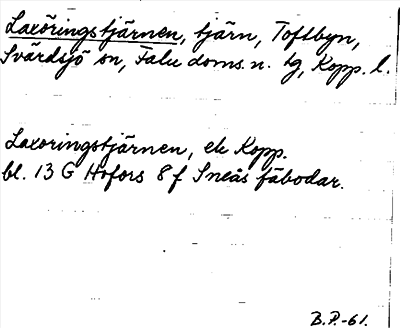 Laxöringstjärnen, tjärn, Toftbyn,
Svärdsjö sn, Falu doms.n. tg, Kopp. l.
Laxöringstjärnen, ek Kopp.
bl. 13 G Hofors 8 f Sneås fäbodar.
B.P.-61.